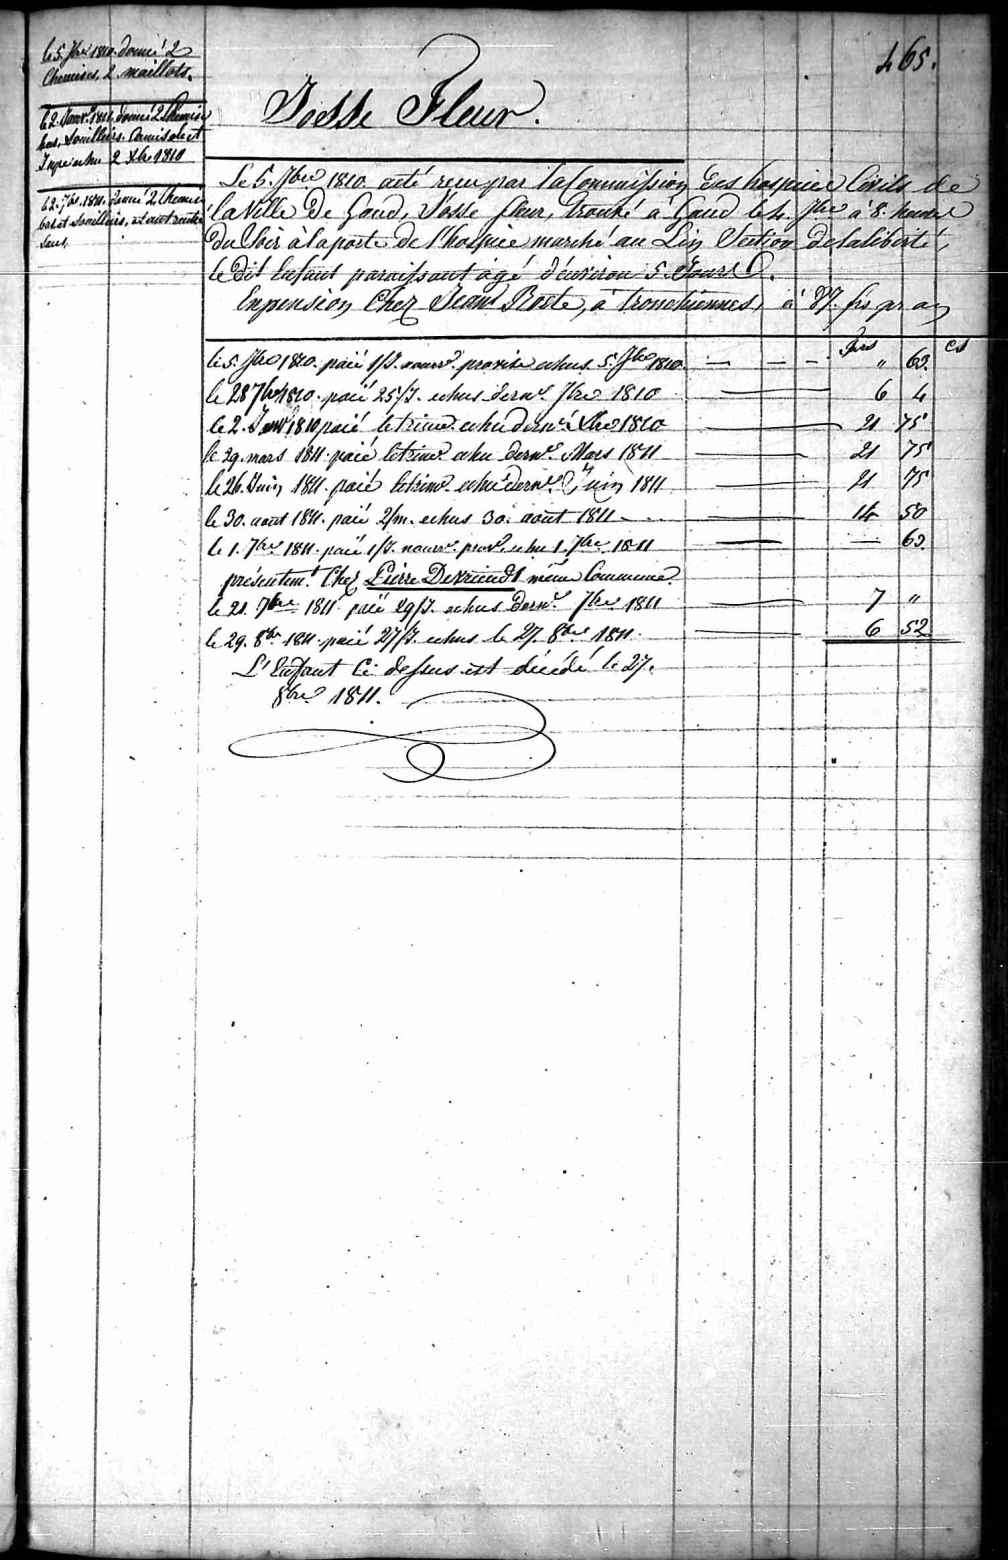 465.
le 5. 7bre 1810. donné 2
Chemises, 2 maillots.
le 2. Janvr. 1811, donné 2 Chemises
bas, souilliers. Camisole et
Jupe echu 2 Xbre 1810
le 2. 7bre. 1811. donné 2 Chemises
bas et souilliers,
Josse Fleur.
Le 5. 7bre 1810 a été reçu par la Commission des hospices Civils de
la Ville de Gand, Josse fleur, trouvé à Gand le 4. 7bre à 8. heures
du Soir à la porte de l'hospice marché au Lin Section de la liberté,
le dit Enfant paraissant âgé d'environ 5. Jours.
En pension Chez Jean Roste, à tronchiennes, à 87. frs pr an
frs cs
le 5. 7bre 1810. paié 1/J. nourr. provise echus 5. 7bre 1810. — — " 63.
le 28 7bre 1810. paié 25/J. echus dernr. 7bre 1810 — 6 4
le 2. Janvr 1810 paié le trime. echu dernr. Xbre 1810 — 21 75
le 29. mars 1811. paié le trimr. echu dernr. Mars 1811 — 21 75
le 26. Juin 1811. paié le trimr. echu dernr. Juin 1811 — 21 75
le 30. aout 1811. paié 2/m. echus 30. aout 1811 — 14 50
le 1. 7bre 1811. paié 1/J. nourr. prov. echu 1. 7bre 1811 — — 63.
présentemt. Chez Pierre Devriendt même Commune.
le 21. 7bre 1811. paié 29/J. echus dernr. 7bre 1811 — 7 "
le 29. 8bre 1811. paié 27/J. echus le 27. 8bre 1811. — 6 52
L'Enfant Ci dessus est décédé le 27.
8bre 1811.